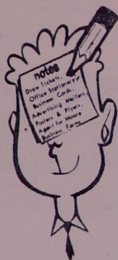 notes
Draw Tickets,
Office Stationery
Business Cards,
Advertising Matter,
Posters & Flyers,
Agent for Moore
Business Forms